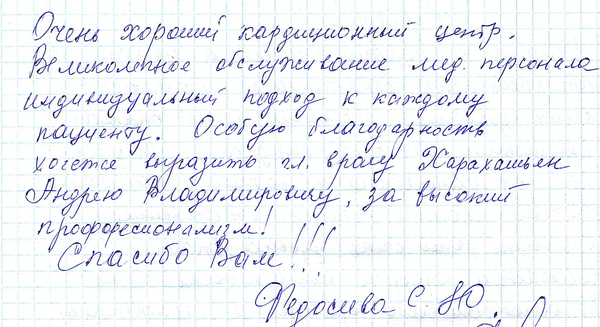 Очень хороший кардиционный центр.
Великолепное обслуживание мед. персонала
индивидуальный подход к каждому
пациенту. Особую благодарность
хочется выразить гл. врачу Харахашьян
Андрею Владимировичу, за высокий
профофесионализм!
Спасибо Вам!!!
Федосива С. Ю.